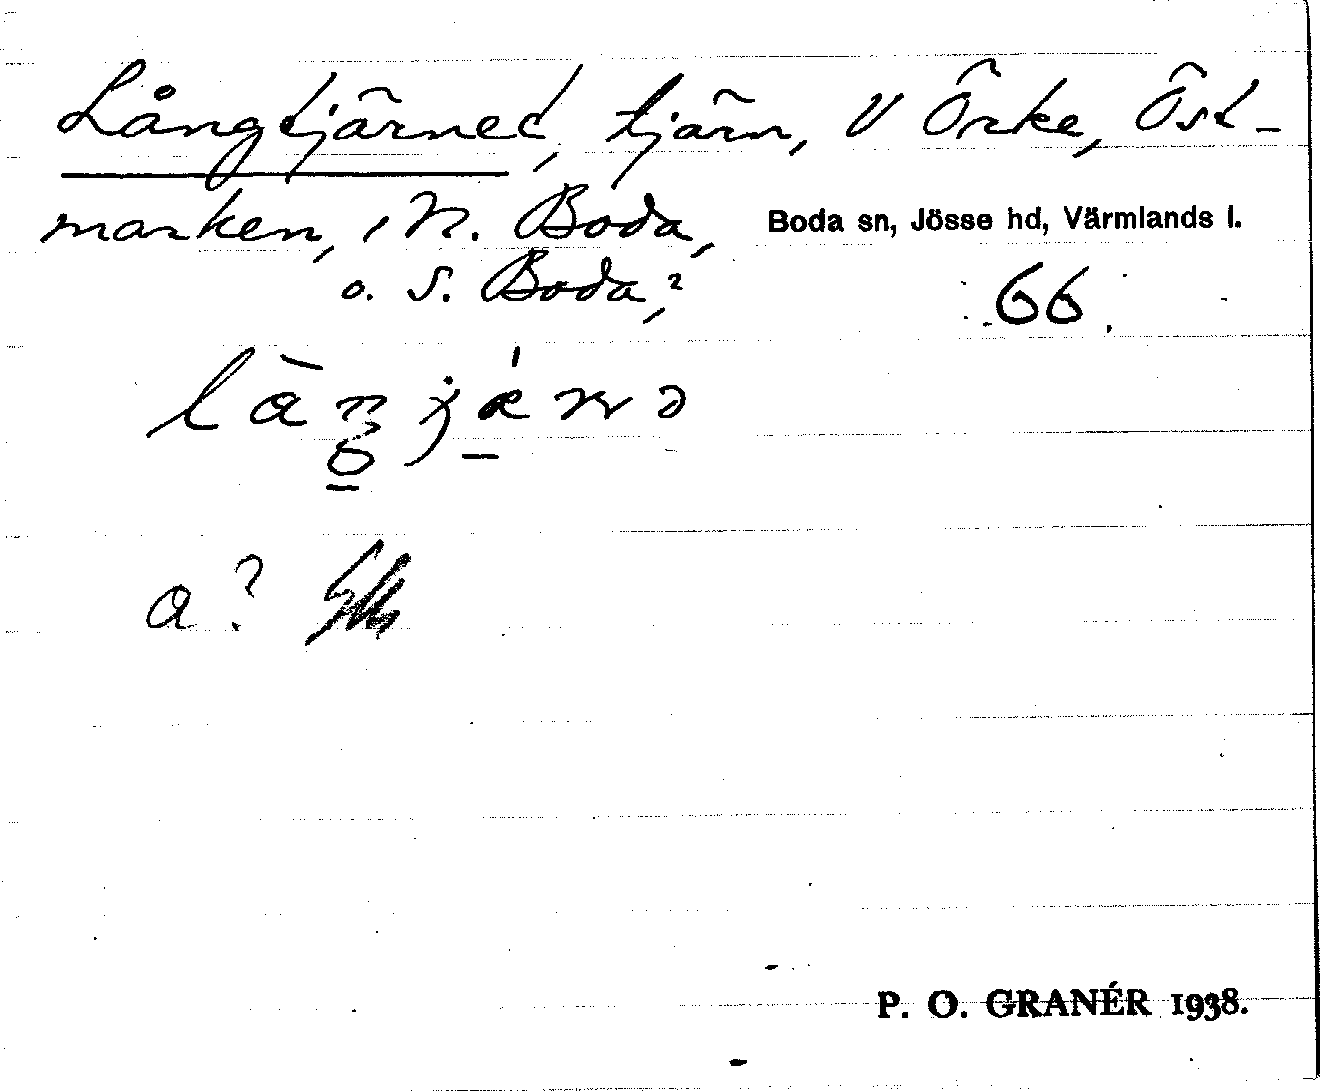 Långtjärnet, tjärn, V Örke, Öst-
marken, i N. Boda, Boda sn, Jösse hd, Värmlands l.
o. S. Boda,? 66.
a?
P. O. GRANÉR 1938.